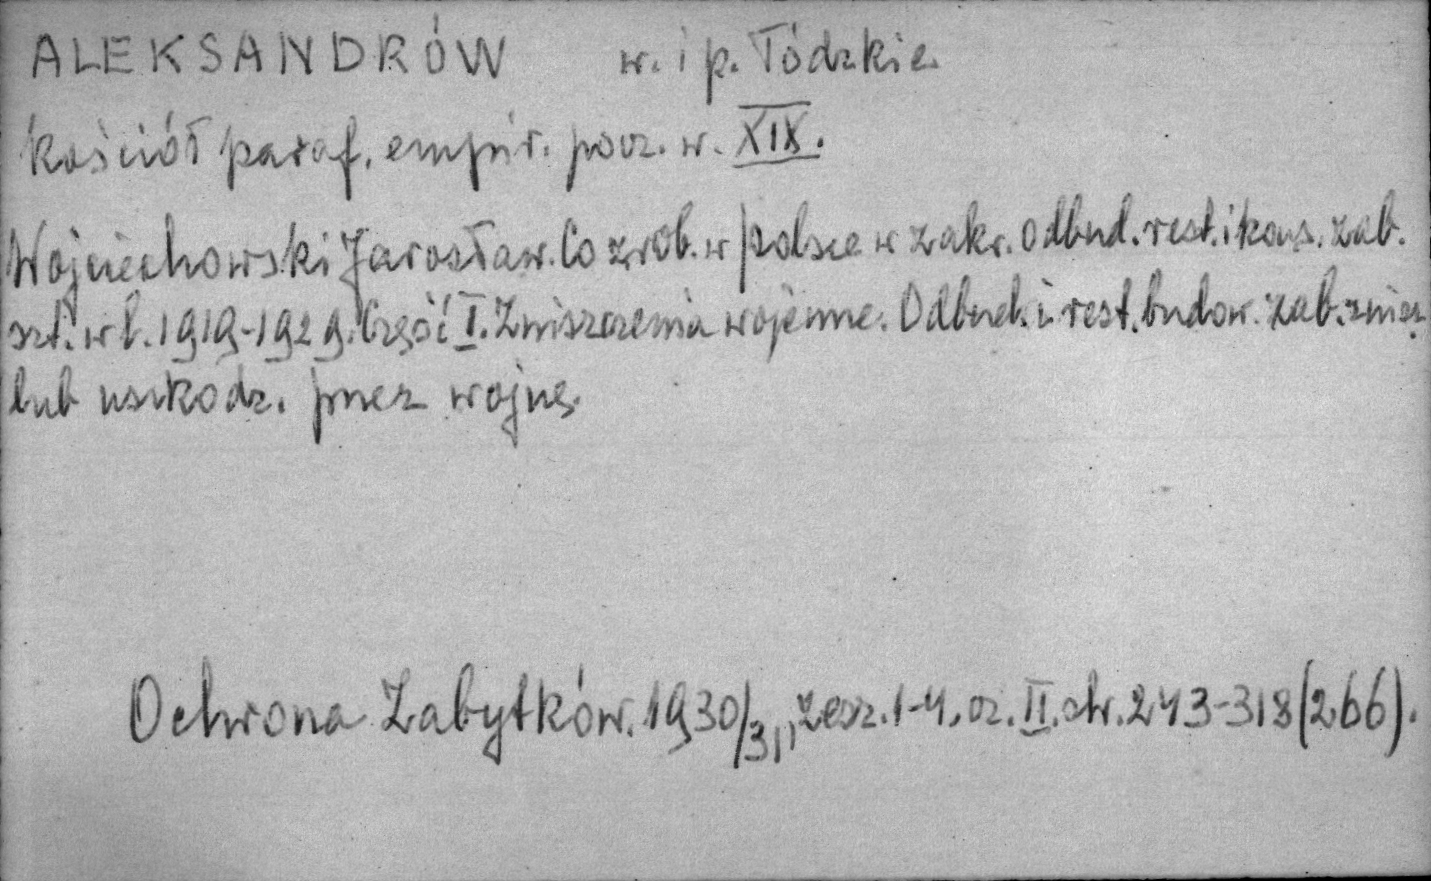 ALEKSANDRÓW w. i p. Łódzkie.
Kościół paraf. empir. pocz. w. XIX.
Wojciechowski Jarosław. Co zrob. w Polsce w zakr. odbud. rest. i kons. zab.
szt. w l. 1919-1929. Część I. Zniszczenia wojenne. Odbud. i rest. budow. zab. znisz.
lub uszkodz. przez wojnę.
Ochrona Zabytków. 1930/31, zesz. 1-4, cz. II. str. 243-318 (266).